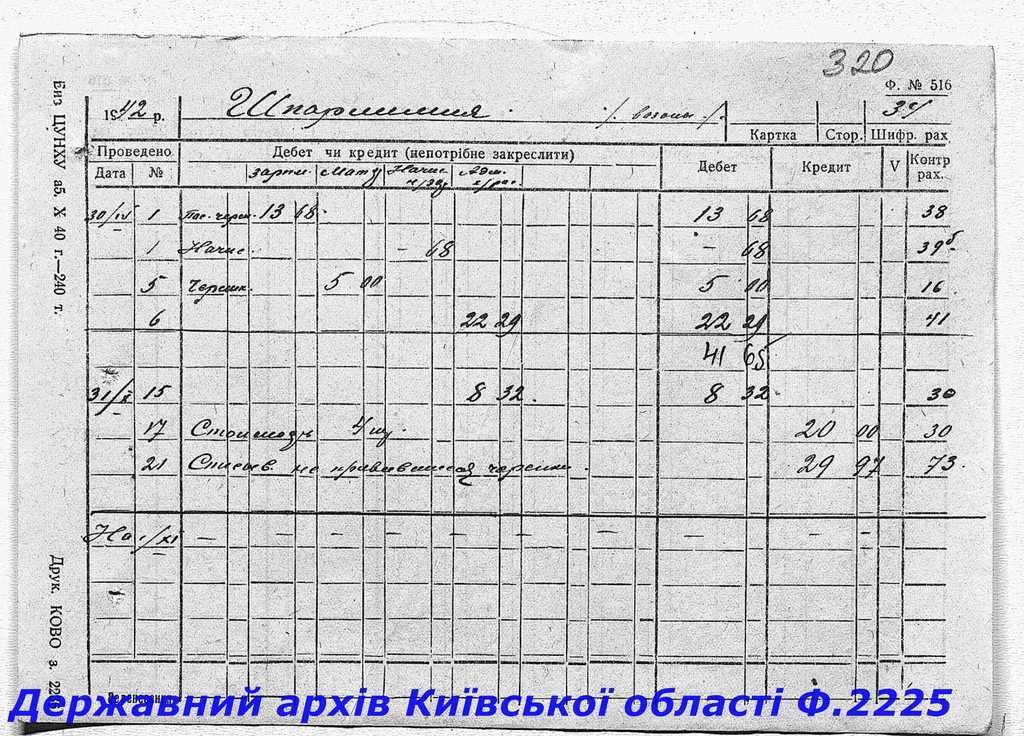 320
Ф. № 516
1942 р.
34
Картка Стор. Шифр. рах
Проведено Дебет чи кредит (непотрібне закреслити) Дебет Кредит V Контр рах.
Дата № зарпл. Мату Начис. Адм.
30/IV 1 Пос. черен. 13 68 13 68 38
1 Начис. – 68 – 68 39б
5 Черенк. 5 00 5 00 16
6 22 29 22 29 41
41 65
31/X 15 8 32 8 32 30
17 4 шт. 20 00 30
21 Списыв. не прививишиеся черенки 29 97 73
На 1/XI – – – – – – – – – –
Биз ЦУНХУ аб. X 40 г.—240 т.
Друк. КОВО з.
Державний архів Київської області Ф.2225